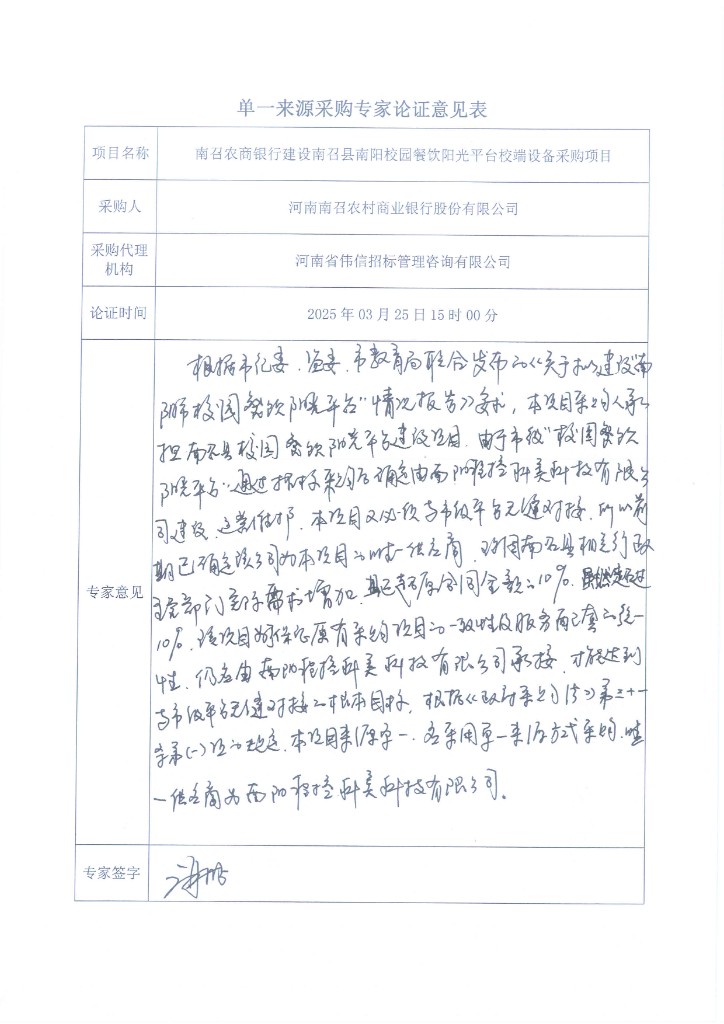 单一来源采购专家论证意见表
项目名称 南召农商银行建设南召县南阳校园餐饮阳光平台校端设备采购项目
采购人 河南南召农村商业银行股份有限公司
采购代理机构 河南省伟信招标管理咨询有限公司
论证时间 2025年03月25日15时00分
专家意见
根据市纪委、监委、市教育局联合发布的《关于拟建设"南
阳市校园餐饮阳光平台"情况报告》要求，本项目采购人承
担南召县校园餐饮阳光平台建设项目。由于市级"校园餐饮
阳光平台"通过招标采购后确定由南阳理控科美科技有限公
司建设、运营维护。本项目又必须与市级平台无缝对接，所以前
期已确定该公司为本项目的唯一供应商，现因南召县相关行政
主管部门实际需求增加，且已超原合同金额的10%。虽然超过
10%，该项目为保证原有采购项目的一致性及服务配套的统一
性，仍应由南阳理控科美科技有限公司承接，才能达到
与市级平台无缝对接的根本目标，根据《政府采购法》第三十一
条第(一)项的规定，本项目来源单一，应采用单一来源方式采购，唯
一供应商为南阳理控科美科技有限公司。
专家签字